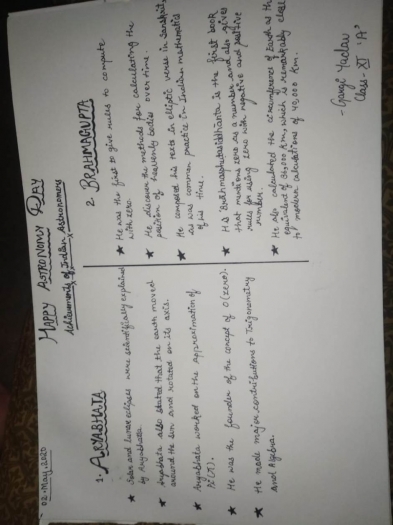 02-May, 2020
HAPPY ASTRONOMY DAY
Achievements of Indian Astronomers
1. ARYABHATA
★ Solar and Lunar eclipses were scientifically explained
by Aryabhata.
★ Aryabhata also stated that the earth moved
around the sun and rotated on its axis.
★ Aryabhata worked on the approximation of
Pi (π).
★ He was the founder of the concept of 0 (zero).
★ He made major contributions to Trigonometry
and Algebra.
2. BRAHMAGUPTA
★ He was the first to give rules to compute
with zero.
★ He discover the methods for calculating the
position of heavenly bodies over time.
★ He composed his texts in elliptic verse in Sanskrit,
as was common practice in Indian mathematics
of his time.
★ His Brahmasphutasiddhanta is the first book
that mentions zero as a number and also gives
rules for using zero with negative and positive
number.
★ He also calculated the circumference of Earth as the
equivalent of 36,000 km, which is remarkably close
to modern calculations of 40,000 km.
- Gargi Yadav
Class - XI 'A'